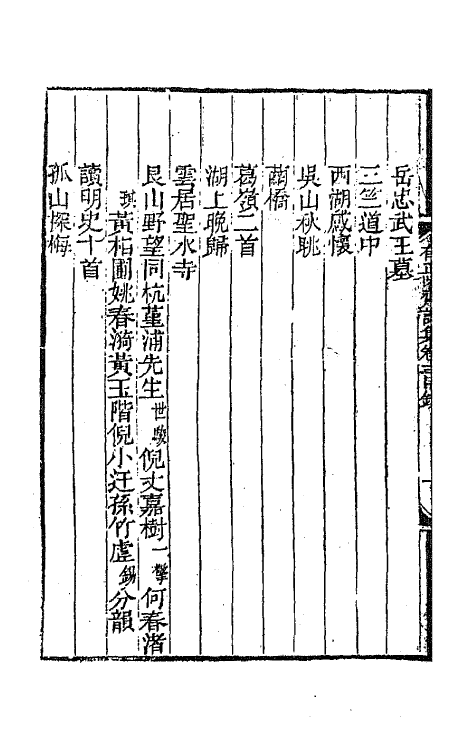 岳忠武王墓
三竺道中
西湖感懷
吳山秋眺
葛嶺二首
湖上晚歸
雲居聖水寺
艮山野望同杭堇浦先生世駿倪丈嘉樹一擎何春渚
琪黃相圃姚春漪黃玉階倪小迂孫竹虛錫分韻
讀明史十首
孤山探梅